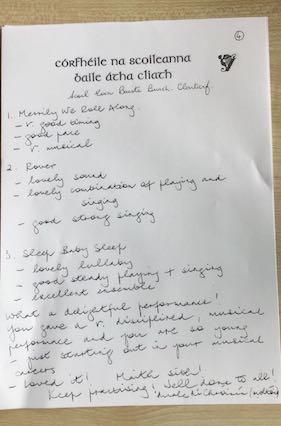 4
córfhéile na scoileanna
baile átha cliath
Scoil Eoin Baiste Clontarf.
1. Merrily We Roll Along.
- v. good timing
- good pace
- v. musical
2. Rover
- lovely sound
- lovely combination of playing and
singing
- good strong singing
3. Sleep Baby Sleep
- lovely lullaby
- good steady playing + singing
- excellent ensemble
What a delightful performance!
You gave a v. disciplined, musical
performance and you are so young
- just starting out in your musical
careers
- Loved it! Maith sibh!
Keep practising! Well done to all!